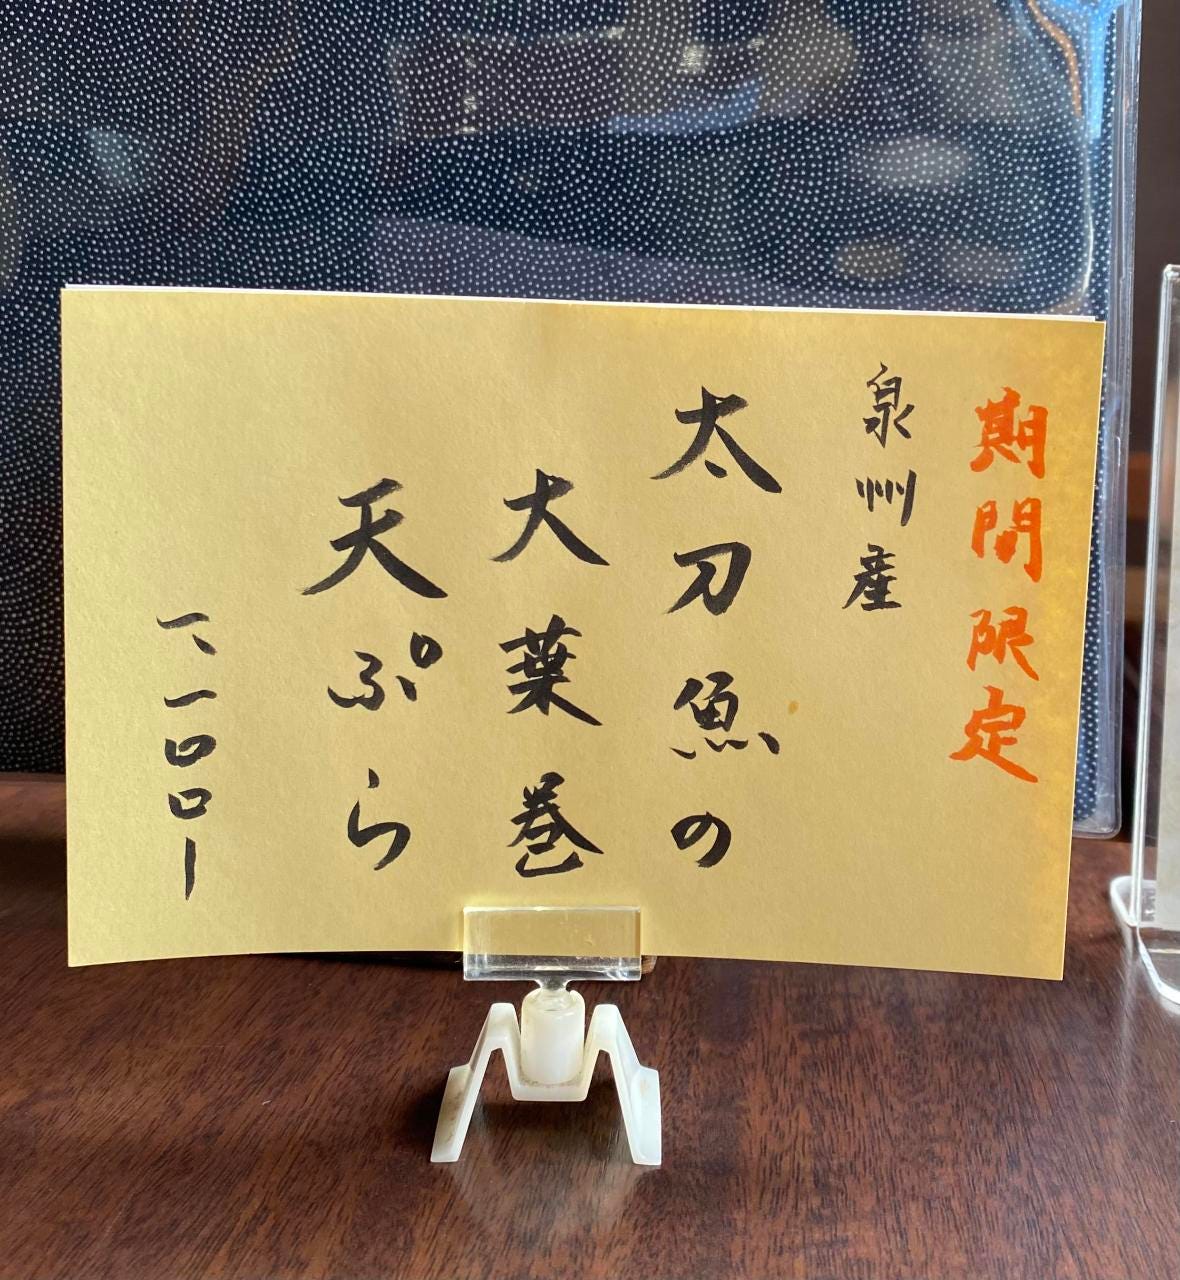 期間限定
泉州産
太刀魚の
大葉巻
天ぷら
一、一〇〇ー